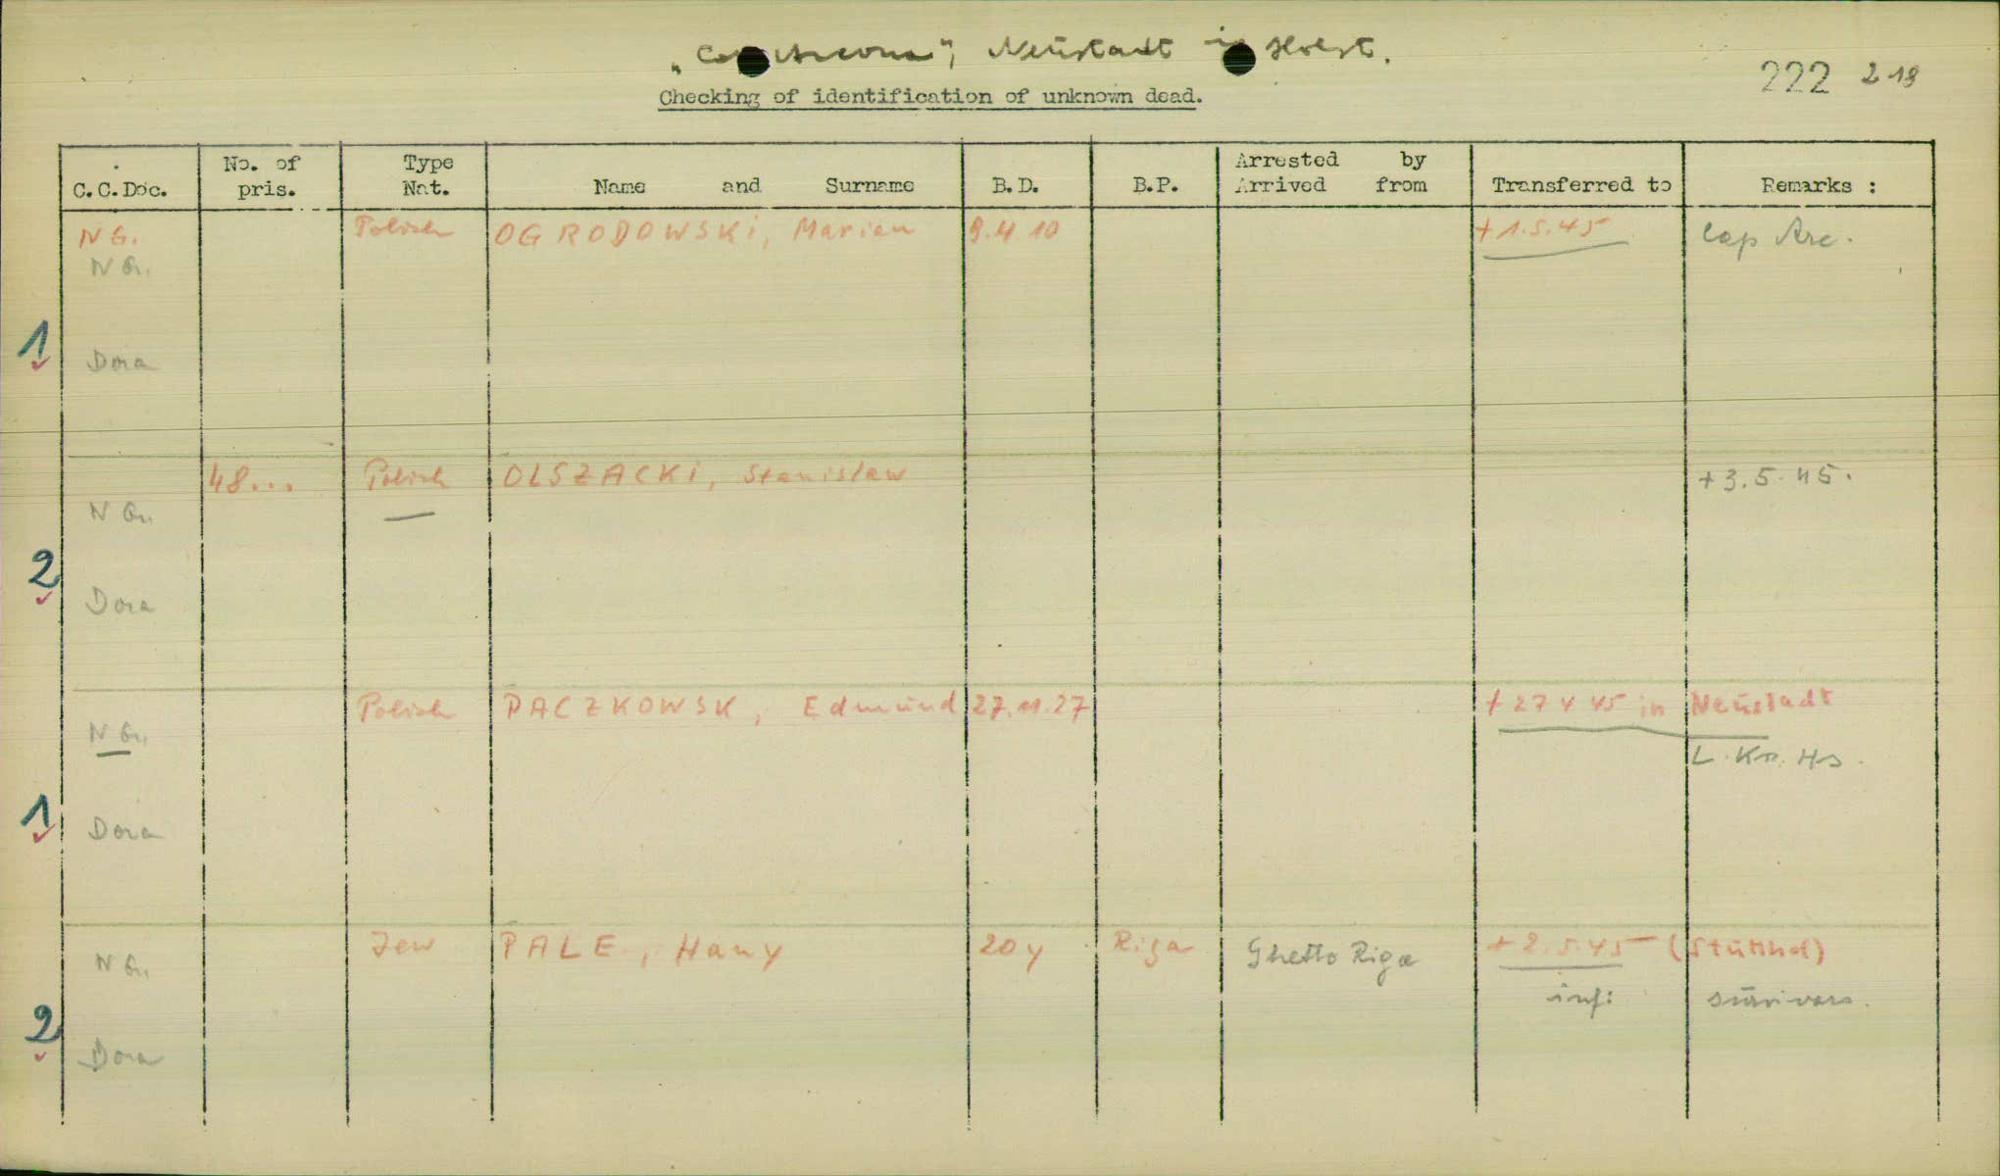 "Cap Arcona", Neustadt in Holst.
222 219
Checking of identification of unknown dead.
C.C.Doc. No. of pris. Type Nat. Name and Surname B.D. B.P. Arrested by Arrived from Transferred to Remarks :
NG. Polish OGRODOWSKi, Marian 9.4.10 +1.5.45 Cap Arc.
N G.
1
Dora
48... Polish OLSZACKi, Stanislaw +3.5.45.
N G.
2
Dora
Polish PACZKOWSK, Edmund 27.11.27 + 27 4 45 in Neustadt
N G. L. Kr. Hs.
1
Dora
Jew PALE, Hany 20y Riga Ghetto Riga + 2.5.45 (Stutthof)
N G. inf: survivors.
2
Dora